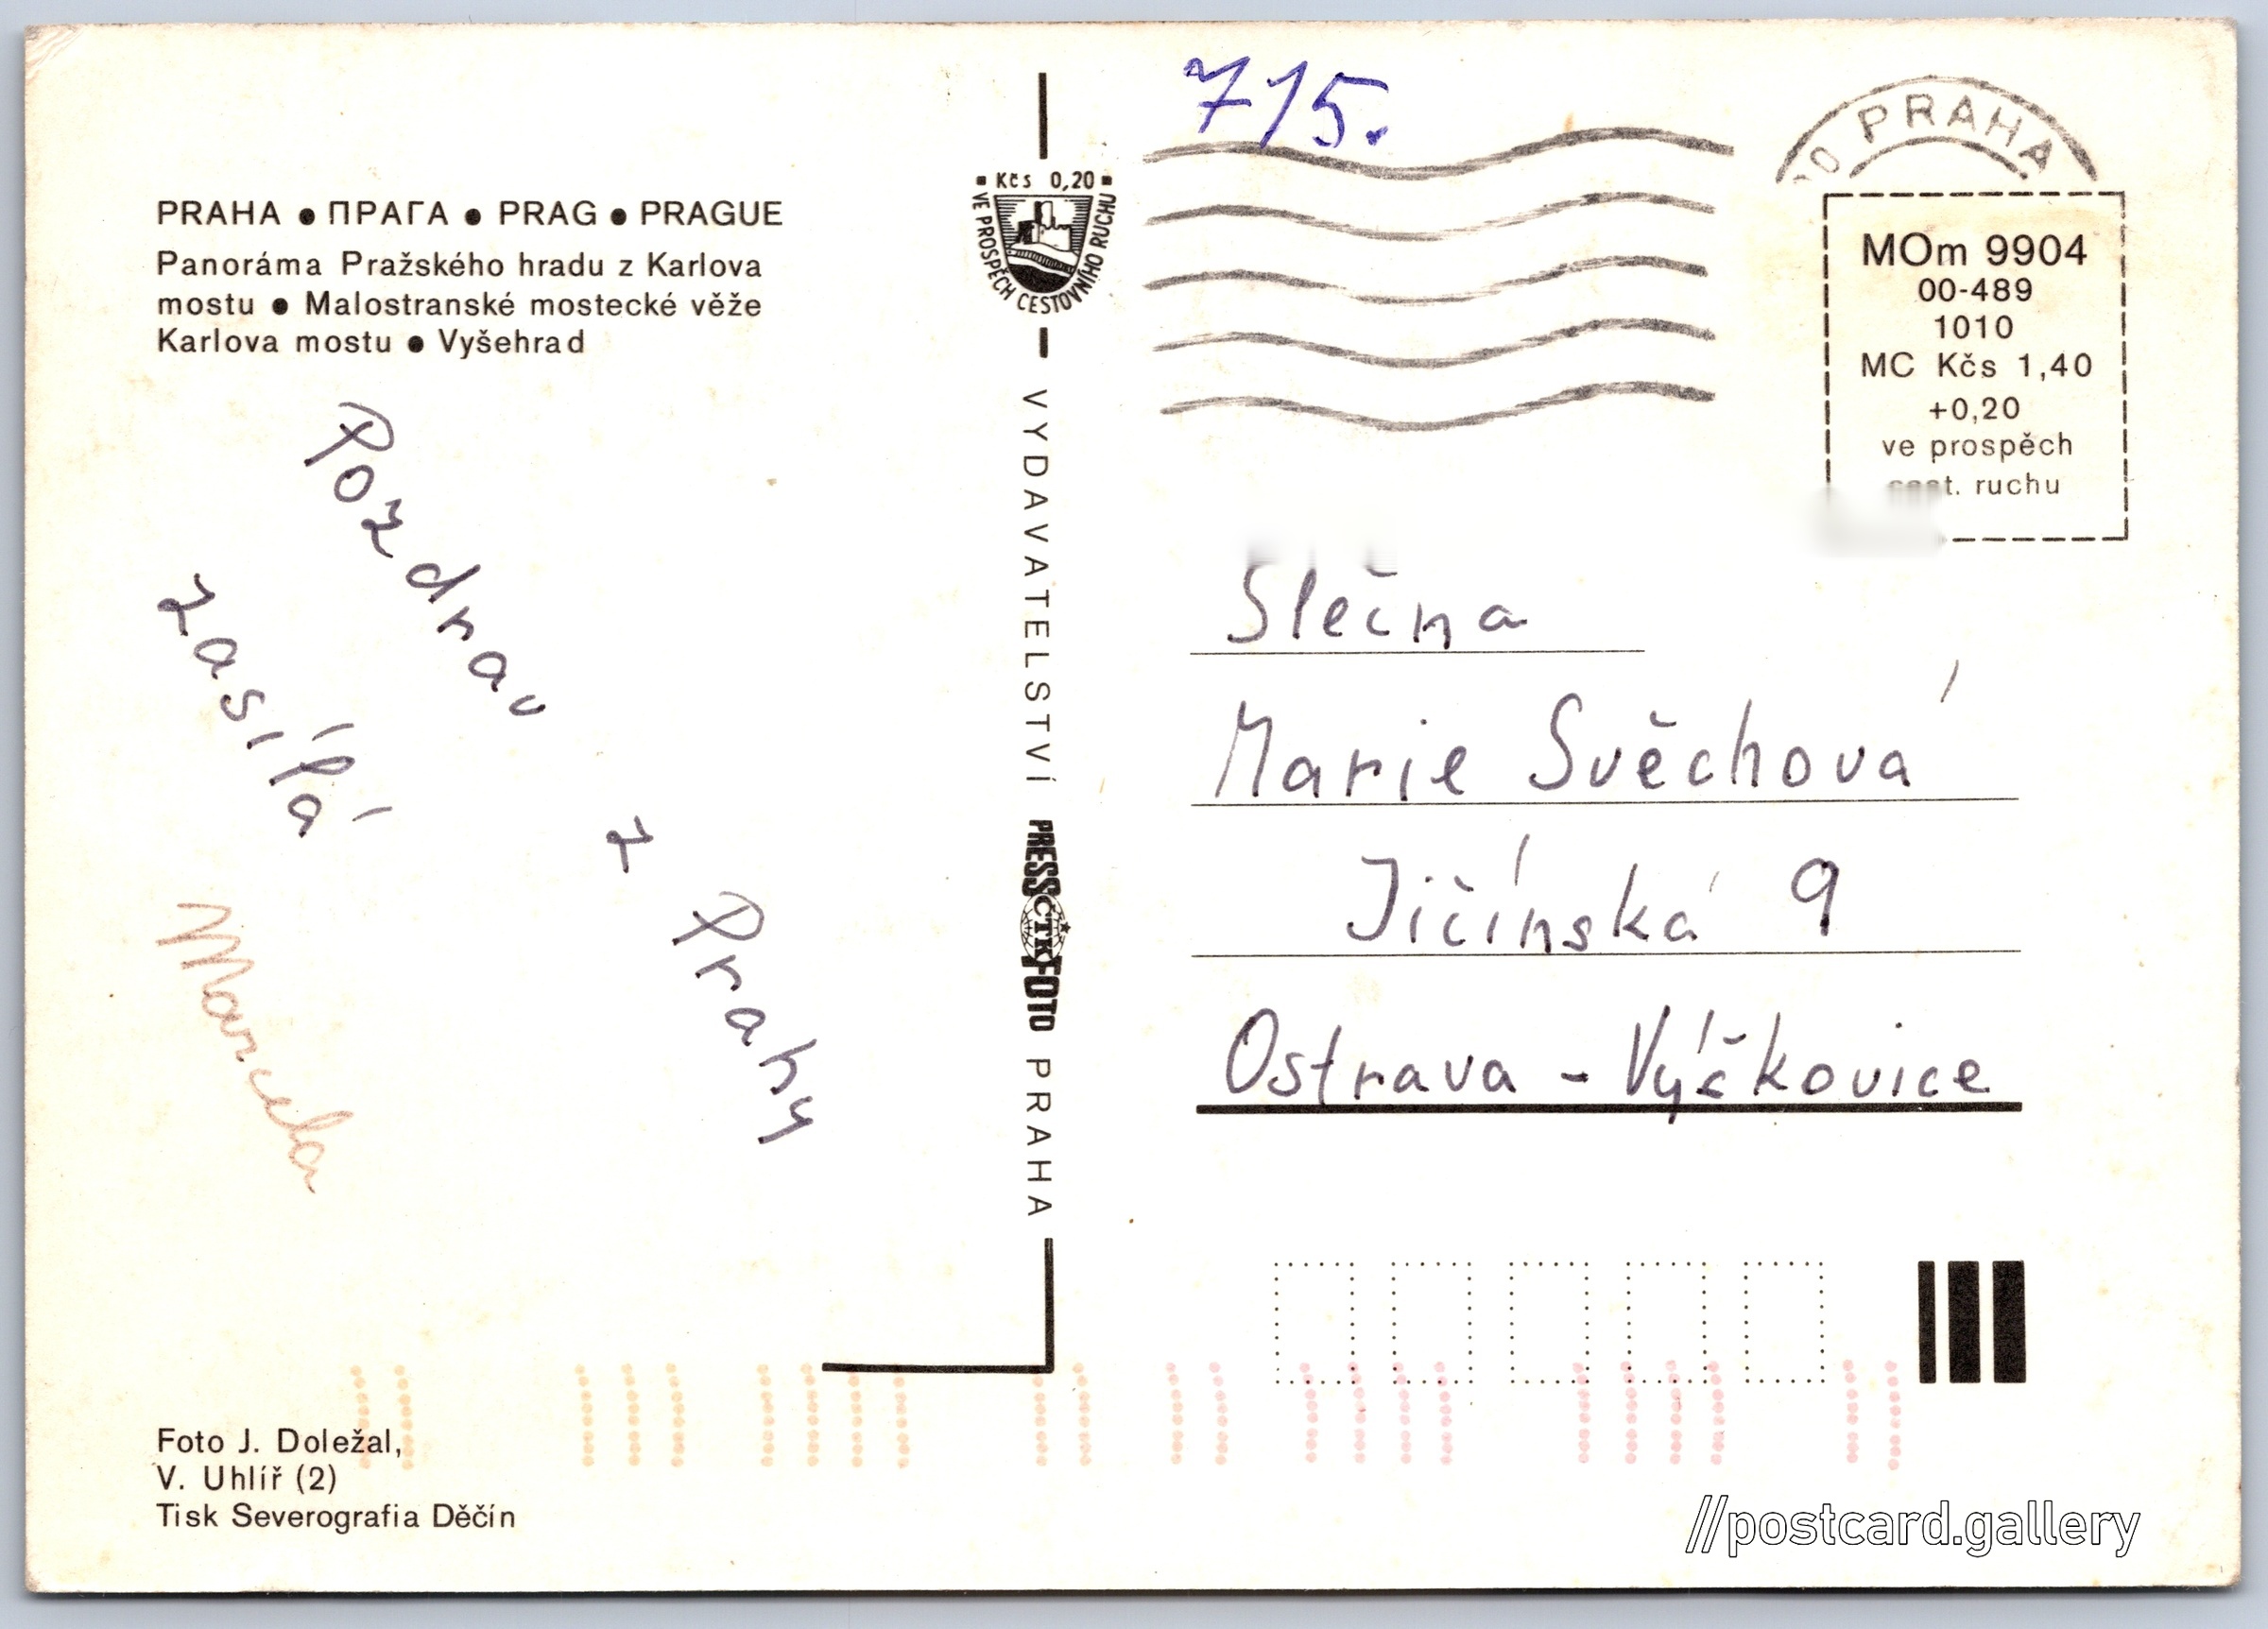 PRAHA ● ПРАГА ● PRAG ● PRAGUE
Panoráma Pražského hradu z Karlova
mostu ● Malostranské mostecké věže
Karlova mostu ● Vyšehrad
Pozdrav z Prahy
zasílá
Marcela
Foto J. Doležal,
V. Uhlíř (2)
Tisk Severografia Děčín
Kčs 0,20
VE PROSPĚCH CESTOVNÍHO RUCHU
VYDAVATELSTVÍ PRESSFOTO PRAHA
ČTK
715.
PRAHA
MOm 9904
00-489
1010
MC Kčs 1,40
+0,20
ve prospěch
cest. ruchu
Slečna
Marie Svěchová
Jičínská 9
Ostrava - Výčkovice
//postcard.gallery